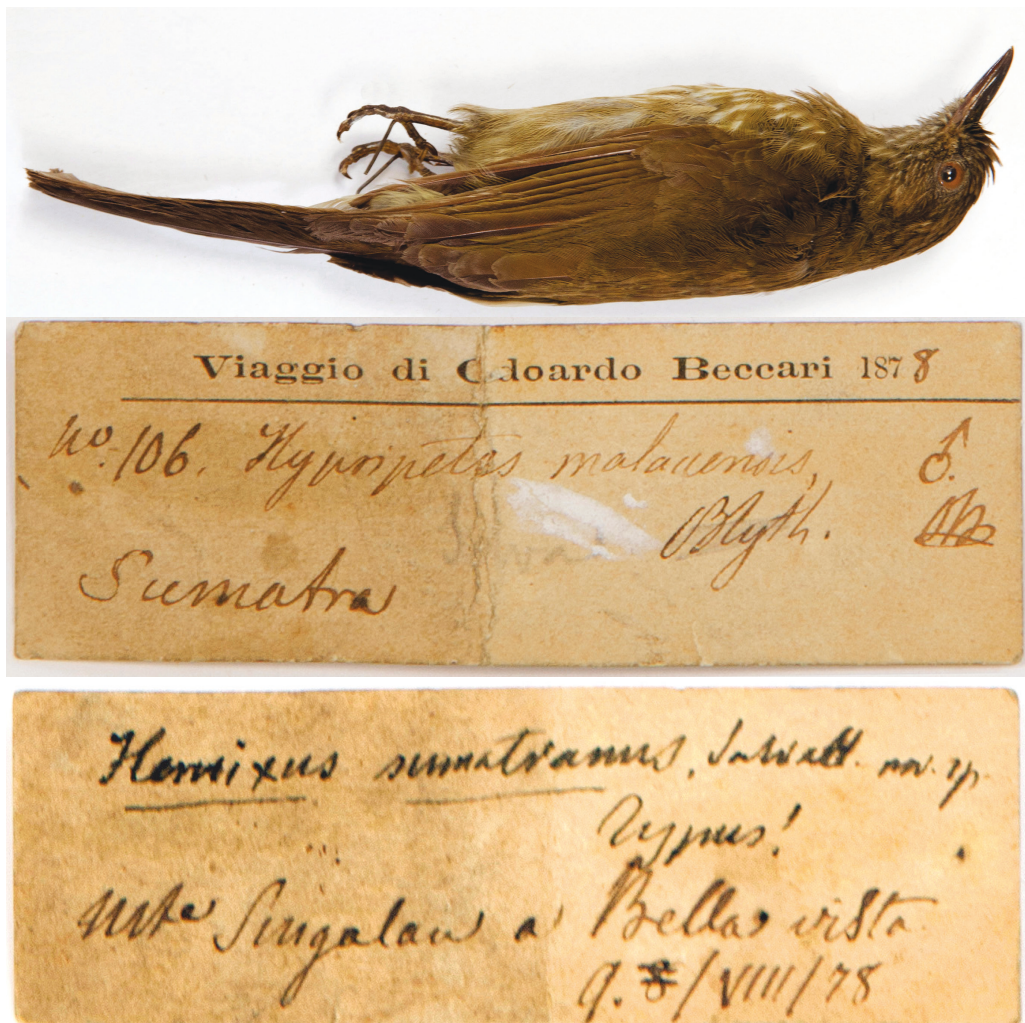 Viaggio di Odoardo Beccari 1878
No. 106. Hypsipetes malaccensis, ♂.
Blyth.
Sumatra
Hemixus sumatranus, Salvad. nov. sp.
Typus!
Mte Singalan a Bella vista
9. /VIII/78